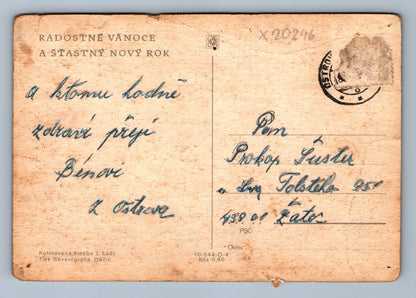 RADOSTNÉ VÁNOCE
A ŠŤASTNÝ NOVÝ ROK
X 20296
a ktomu hodně
zdraví přejí
Bénovi
z Ostrova
Pan
Prokop Šuster
Tolstého 951
438 01 Žatec
PSČ
Okres
Kolorovaná kresba J. Lady
Tisk Severografia Děčín
10-544-O-4
Kčs 0,60
OSTROV